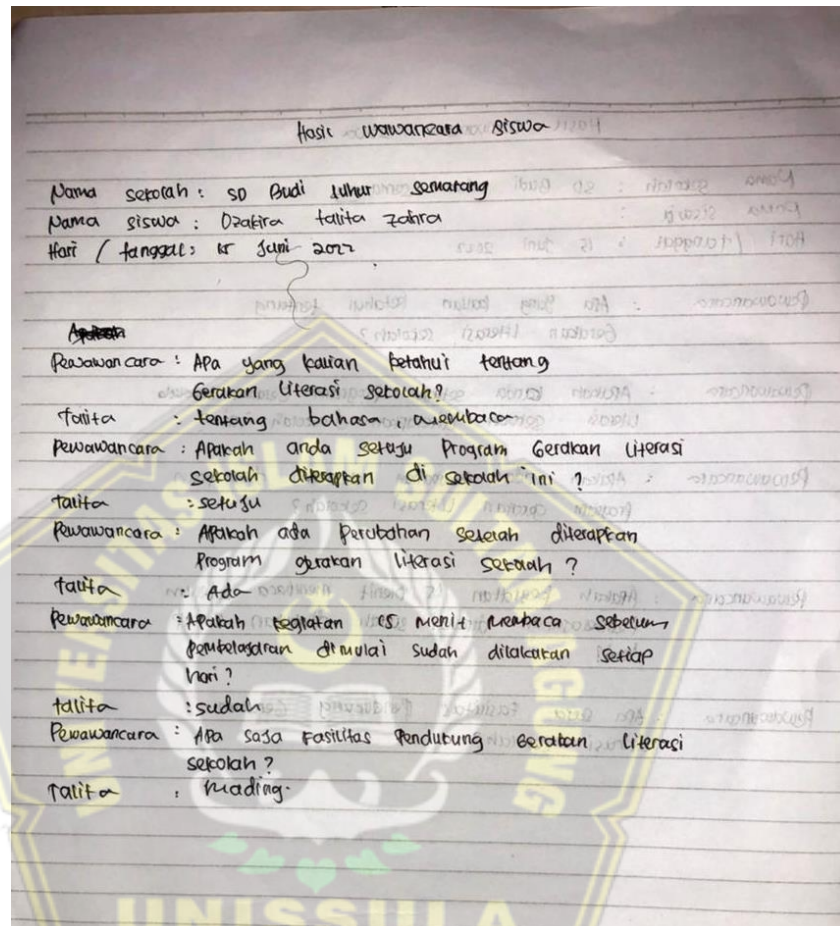 Hasil wawancara siswa
Nama sekolah : SD Budi luhur semarang
Nama siswa : Dzakira talita zahra
Hari / tanggal : 15 Juni 2022
Pewawancara : Apa yang kalian ketahui tentang
Gerakan literasi sekolah?
Talita : tentang bahasa, membaca
Pewawancara : Apakah anda setuju Program Gerakan literasi
sekolah diterapkan di sekolah ini ?
talita : setuju
Pewawancara : Apakah ada perubahan setelah diterapkan
Program gerakan literasi sekolah ?
talita : Ada
Pewawancara : Apakah kegiatan 15 menit membaca sebelum
pembelajaran dimulai sudah dilakukan setiap
hari ?
talita : sudah
Pewawancara : Apa saja Fasilitas Pendukung Gerakan literasi
sekolah ?
Talita : Mading.
UNIVERSITAS ISLAM SULTAN AGUNG
UNISSULA